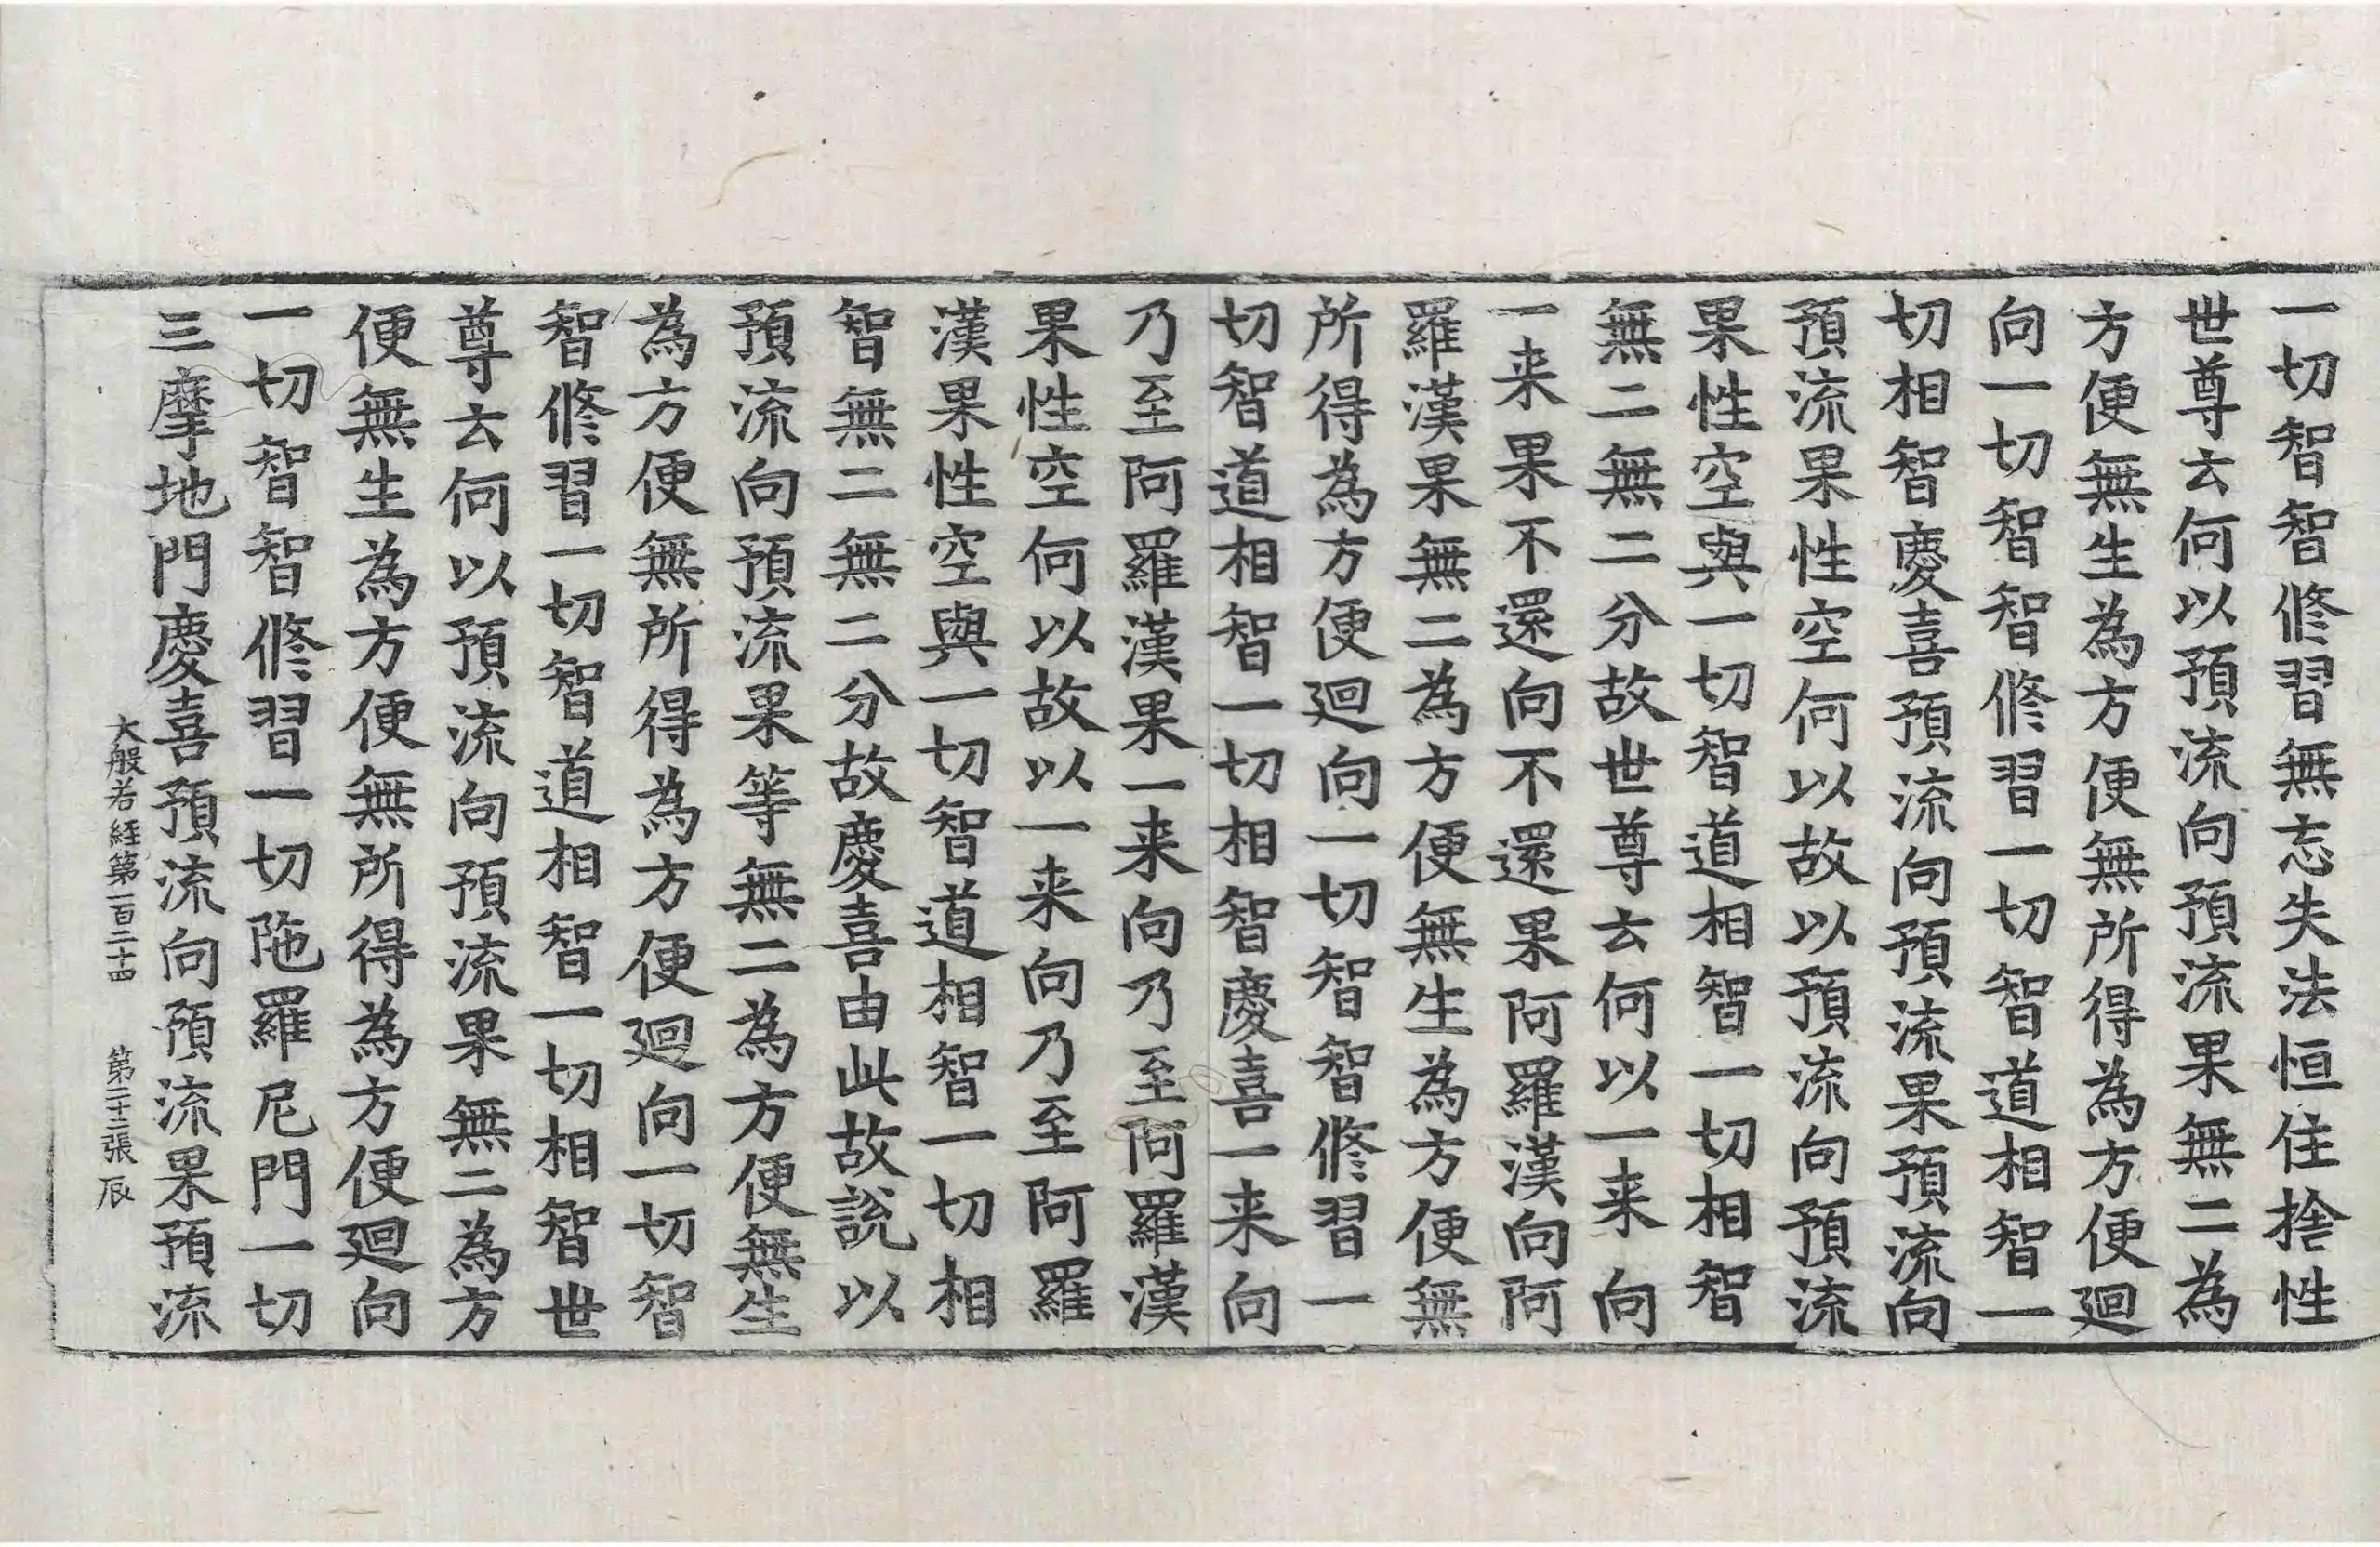 一切智智修習無忘失法恒住捨性
世尊云何以預流向預流果無二為
方便無生為方便無所得為方便迴
向一切智智修習一切智道相智一
切相智慶喜預流向預流果預流向
預流果性空何以故以預流向預流
果性空與一切智道相智一切相智
無二無二分故世尊云何以一来向
一来果不還向不還果阿羅漢向阿
羅漢果無二為方便無生為方便無
所得為方便迴向一切智智修習一
切智道相智一切相智慶喜一来向
乃至阿羅漢果一来向乃至阿羅漢
果性空何以故以一来向乃至阿羅
漢果性空與一切智道相智一切相
智無二無二分故慶喜由此故說以
預流向預流果等無二為方便無生
為方便無所得為方便迴向一切智
智修習一切智道相智一切相智世
尊云何以預流向預流果無二為方
便無生為方便無所得為方便迴向
一切智智修習一切陁羅尼門一切
三摩地門慶喜預流向預流果預流
大般若経第一百二十四 第二十三張 辰